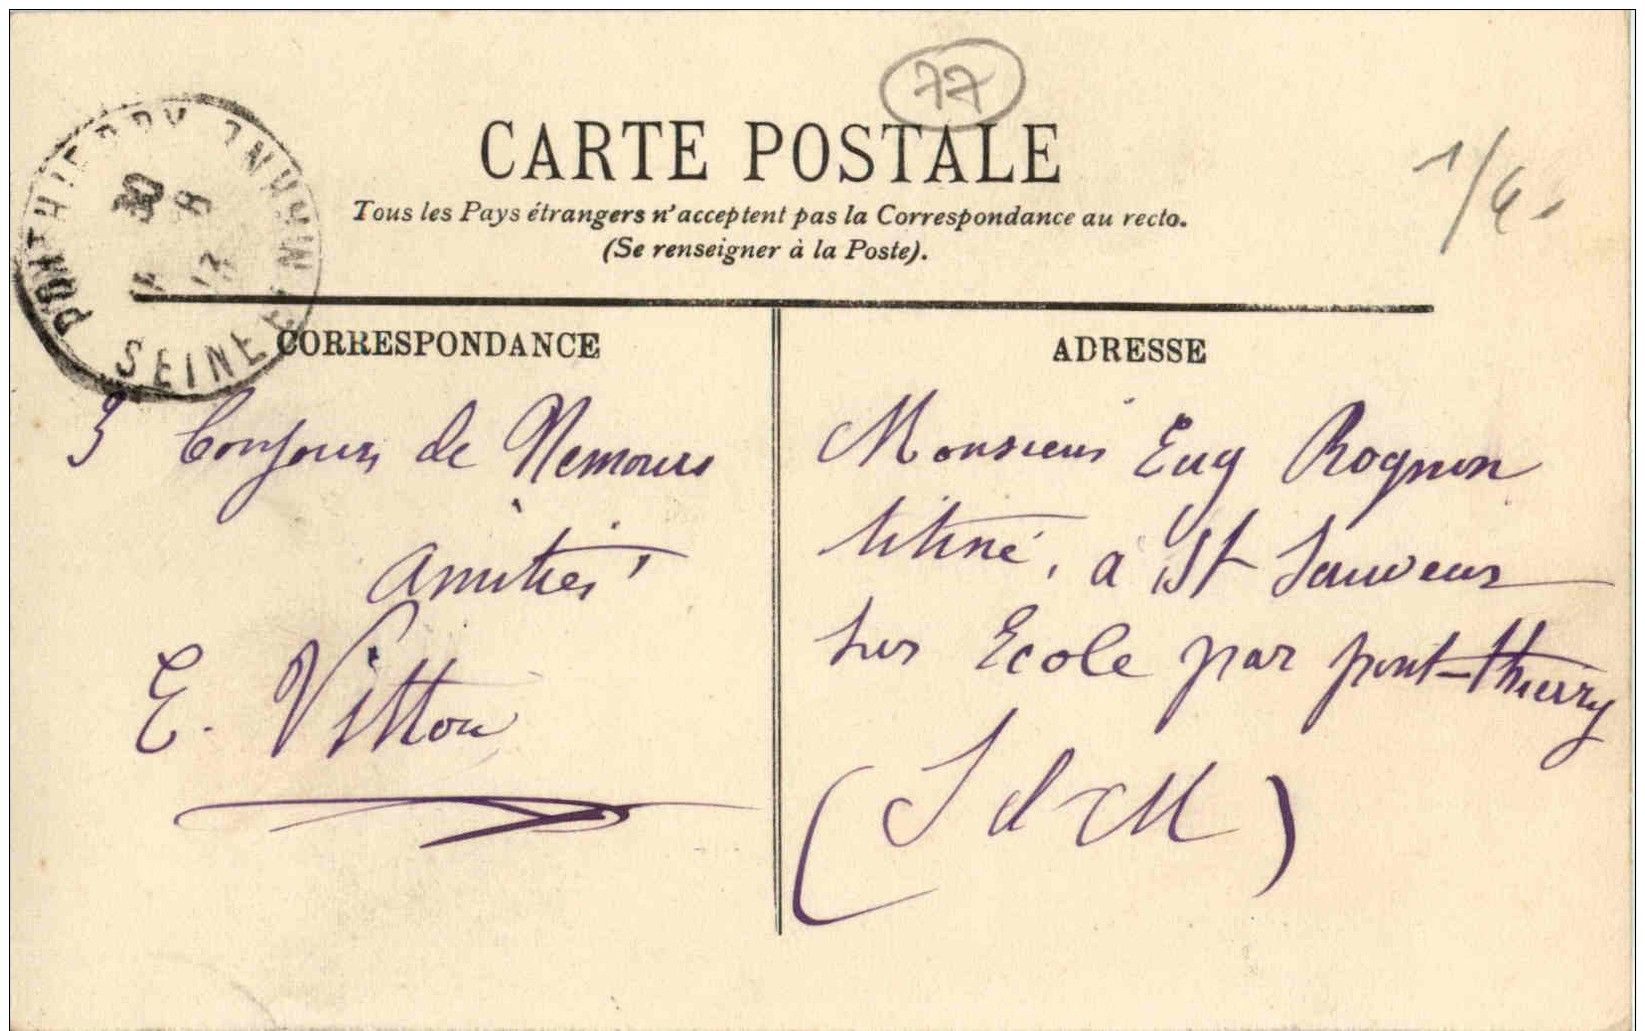 77
CARTE POSTALE
1/4
Tous les Pays étrangers n'acceptent pas la Correspondance au recto.
(Se renseigner à la Poste).
PONTHIERRY
SEINE ET MARNE
CORRESPONDANCE
3 bonjours de Nemours
amitiés
E. Vitton
ADRESSE
Monsieur Eug Rognon
titiné, à St Sauveur
sur Ecole par pont-thierry
(S et M)